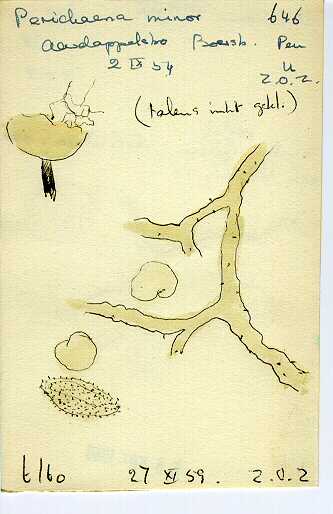 Perichaena minor 646
Aardappelklo Boersh. Pen
2 IX 54 U
Z.O.2.
(tekens inkt gekl.)
t/60 27 XI 59. Z.O.2